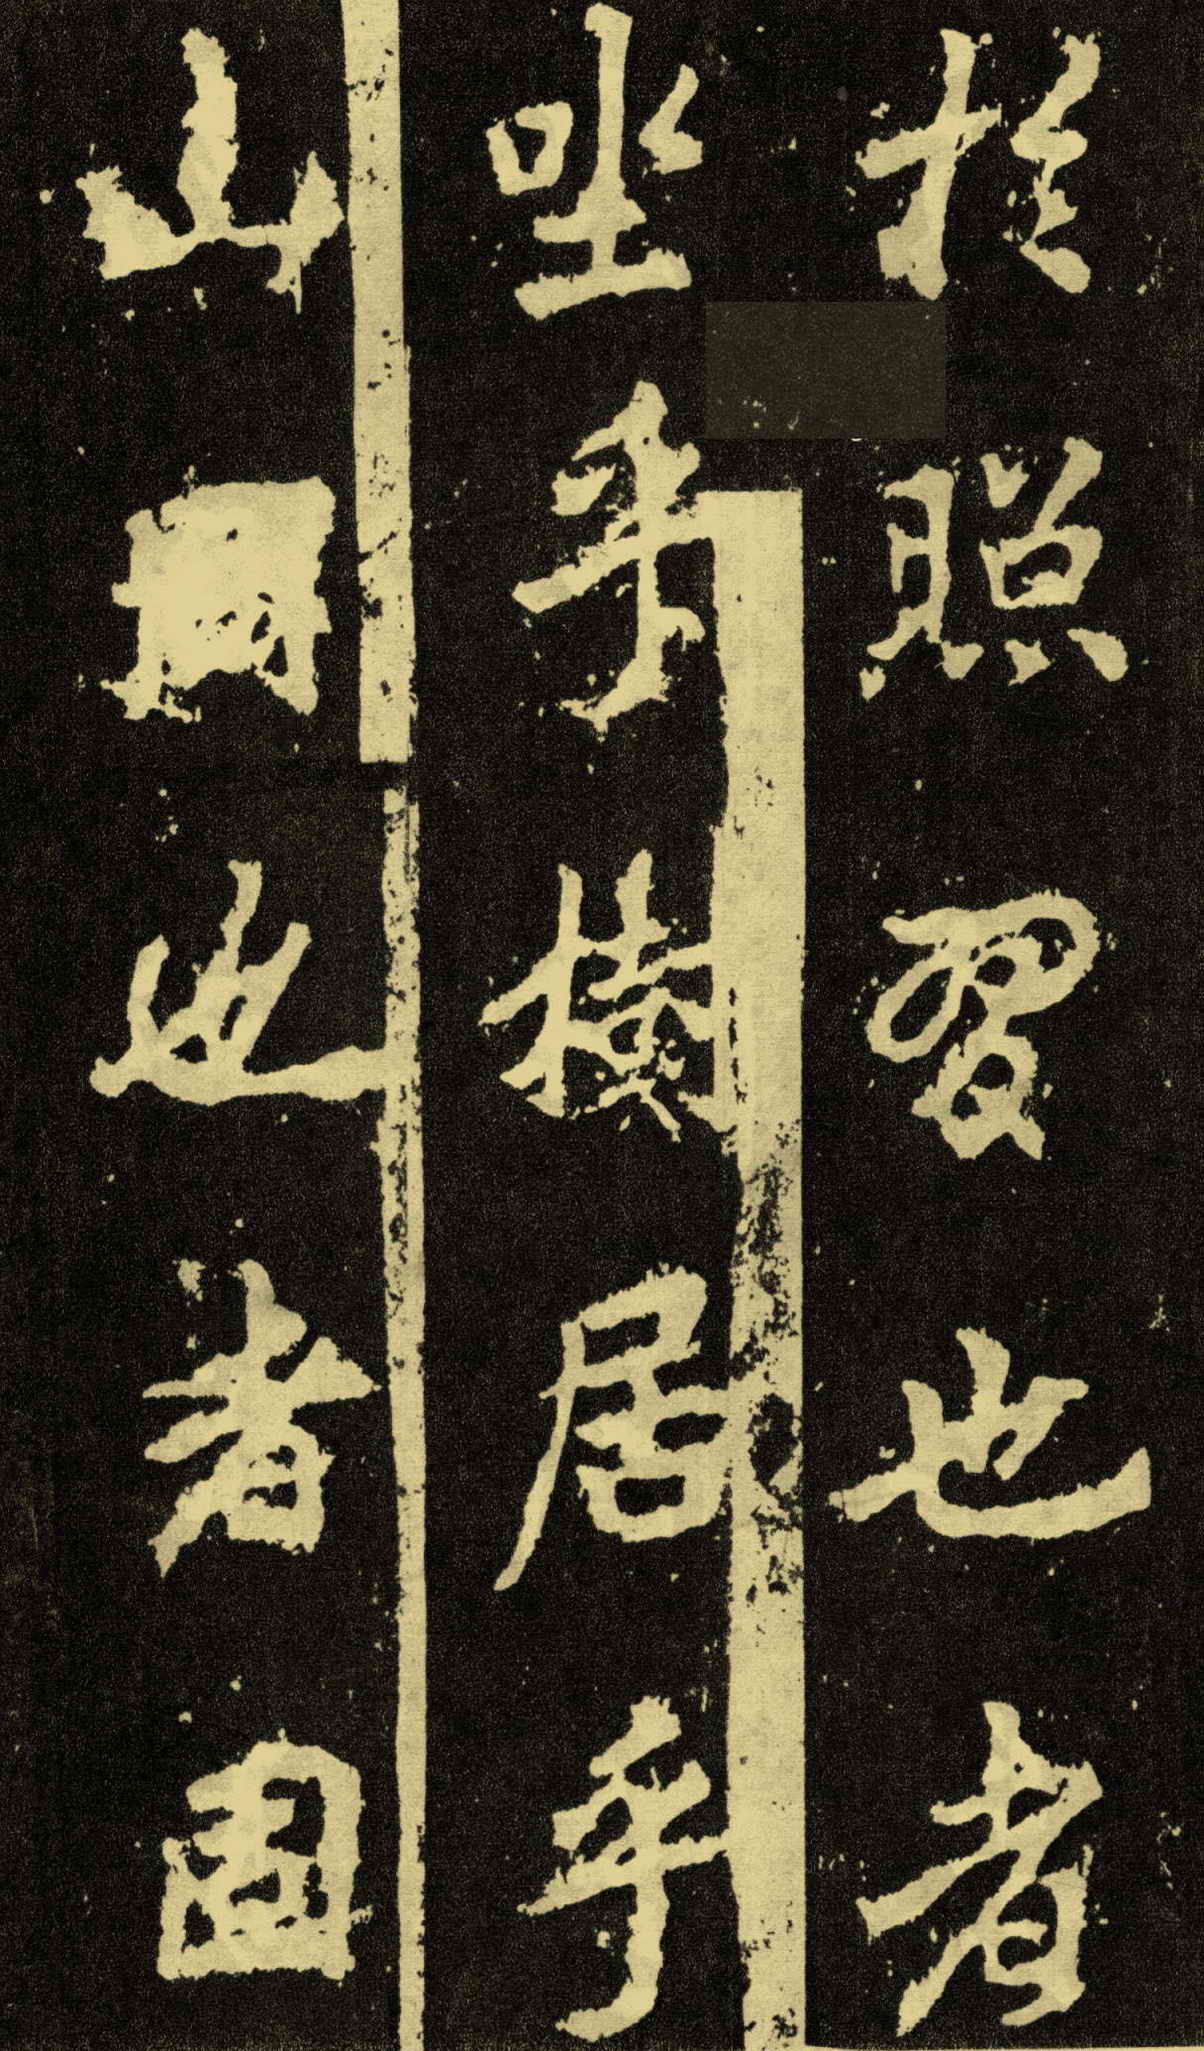 於照習也者
坐乎樹居乎
山也者固